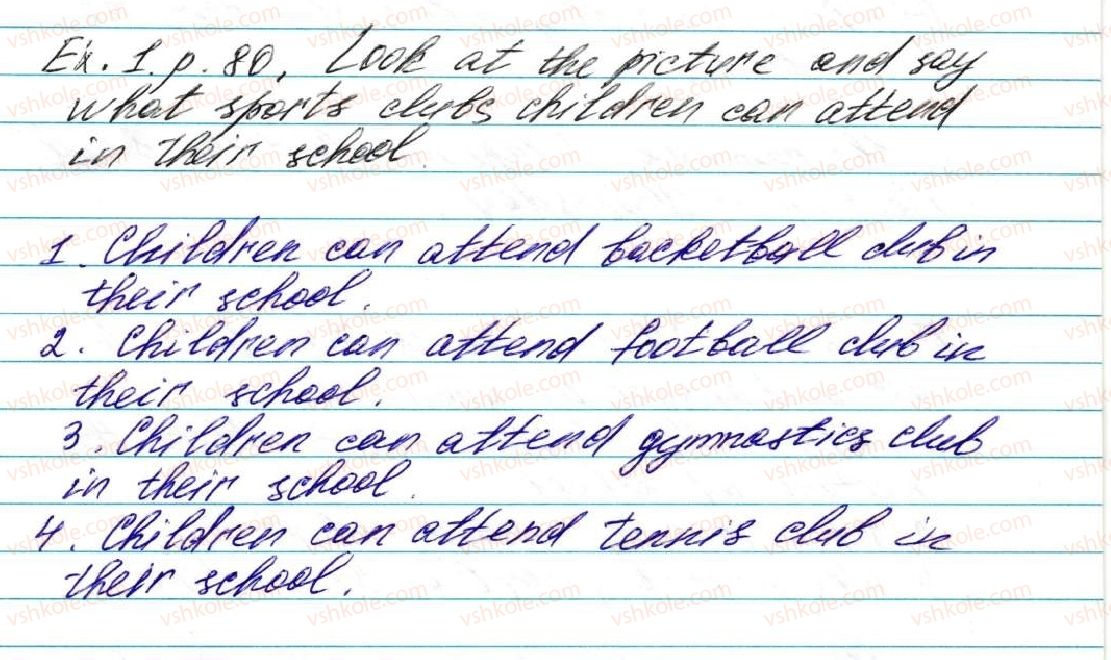 Ex. 1. p. 80. Look at the picture and say
what sports clubs children can attend
in their school.
1. Children can attend backetball club in
their school.
2. Children can attend football club in
their school.
3. Children can attend gymnastics club
in their school.
4. Children can attend tennis club in
their school.
vshkole.com